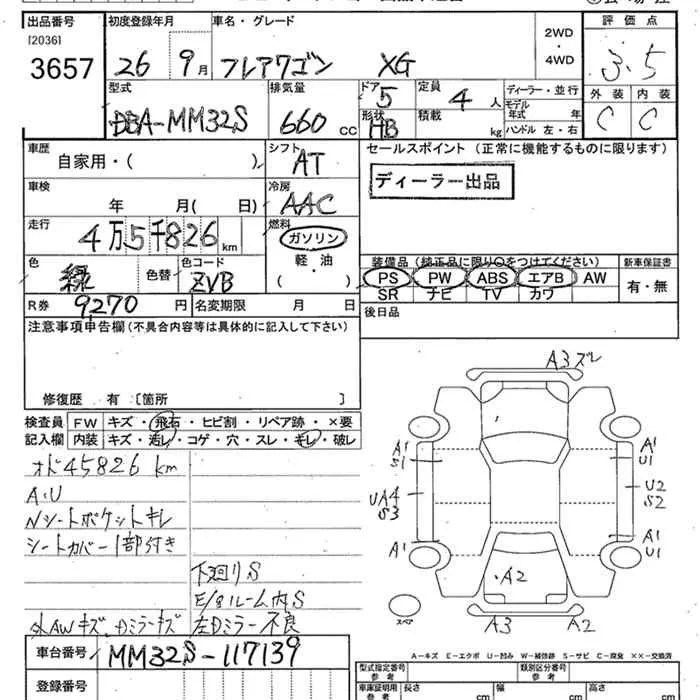 出品番号
[2036]
3657
初度登録年月
26 9月
車名・グレード
フレアワゴン XG
2WD
・
4WD
評価点
3.5
外装 内装
C C
型式
DBA-MM32S
排気量
660 CC
ドア
5
形状
HB
定員
4 人
積載
kg
ディーラー・並行
モデル
年式 年
ハンドル 左・右
車歴
自家用・( )
シフト
AT
車検
年 月( 日)
冷房
AAC
走行
4万5千826km
燃料
ガソリン
軽・油
・( )
色
緑
色替
色コード
ZVB
R券 9270 円
名変期限 月 日
セールスポイント (正常に機能するものに限ります)
ディーラー出品
装備品 (純正品に限り○をつけてください)
PS PW ABS エアB AW
SR ナビ TV カワ
新車保証書
有・無
後日品
注意事項申告欄(不具合内容等は具体的に記入して下さい)
修復歴 有 [箇所 ]
検査員
記入欄
FW キズ・飛石・ヒビ割・リペア跡・×要
内装 キズ・汚レ・コゲ・穴・スレ・キレ・破レ
オド45826km
A.U
Nシートポケットキレ
シートカバー1部付き
下廻りS
E/gルーム内S
外AWキズ、Dミラーキズ 左Dミラー不良
車台番号 MM32S-117139
登録番号
A3ズレ
A1
S1
A1
U1
UA4
S3
U2
S2
A1
A1
U1
A2
A3 A2
スペア
A-キズ E-エクボ U-凹み W-補修跡 S-サビ C-腐食 XX-交換済
型式指定番号
参考
類別区分番号
参考
車庫証明用
参考
長さ cm
幅 cm
高さ cm